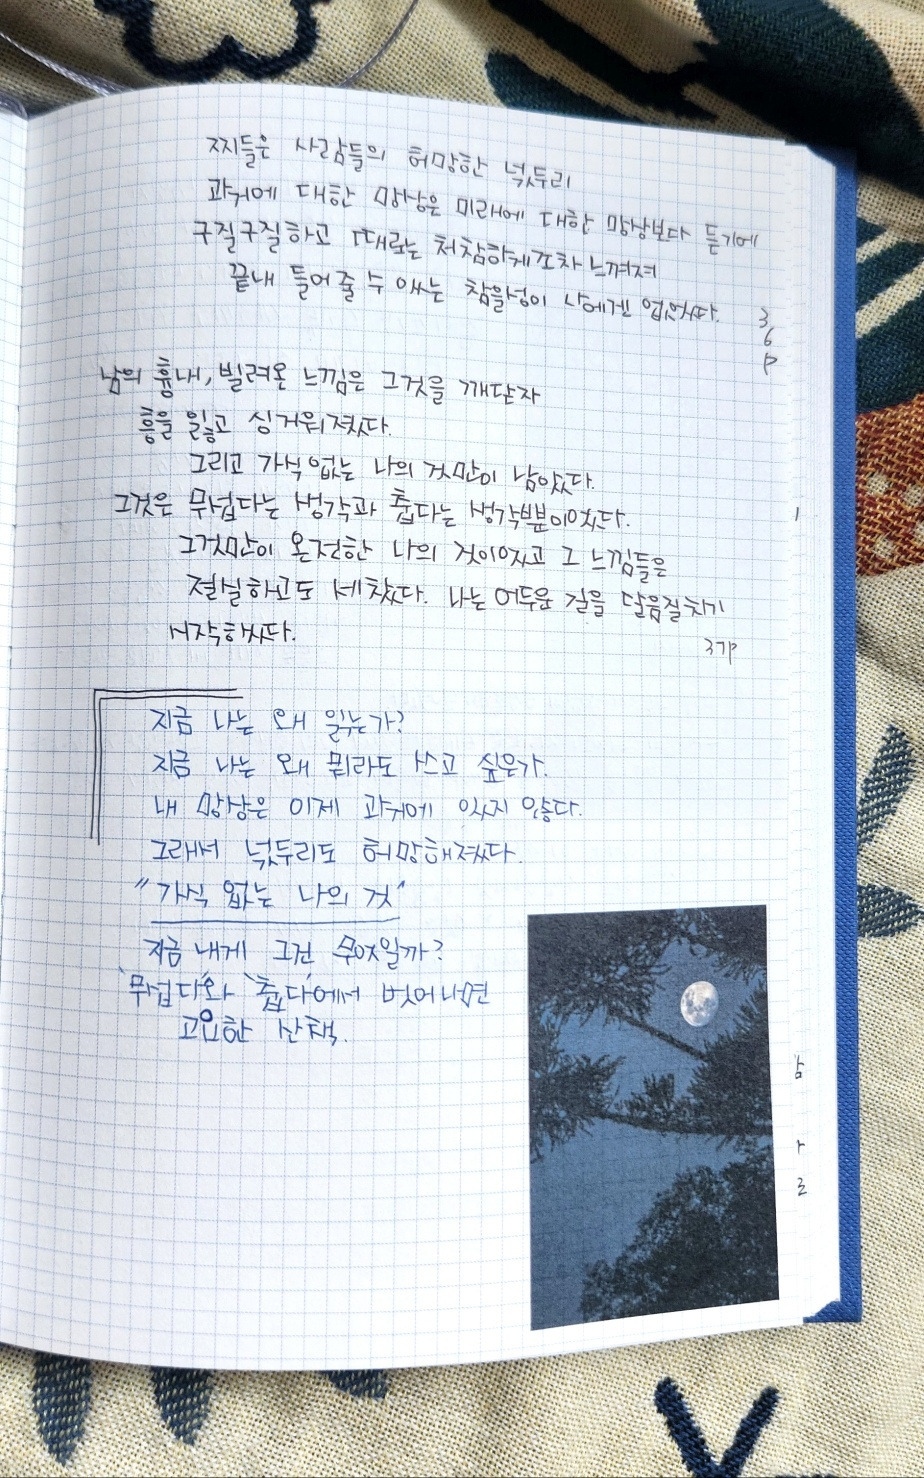 찌들은 사람들의 허망한 넋두리
과거에 대한 망상은 미래에 대한 망상보다 듣기에
구질구질하고 때로는 처참하게조차 느껴져
끝내 들어줄 수 있는 참을성이 나에겐 없었다.
36p
남의 흉내, 빌려온 느낌은 그것을 깨닫자
흥을 잃고 싱거워졌다.
그리고 가식없는 나의 것만이 남았다.
그것은 무섭다는 생각과 춥다는 생각뿐이었다.
그것만이 온전한 나의 것이었고 그 느낌들은
절실하고도 세찼다. 나는 어두운 길을 달음질치기
시작했다.
37p
지금 나는 왜 읽는가?
지금 나는 왜 뭐라도 쓰고 싶은가.
내 망상은 이제 과거에 있지 않다.
그래서 넋두리도 허망해졌다.
"가식 없는 나의 것"
지금 내게 그건 무엇일까?
'무섭다'와 '춥다'에서 벗어나면
고요한 산책.